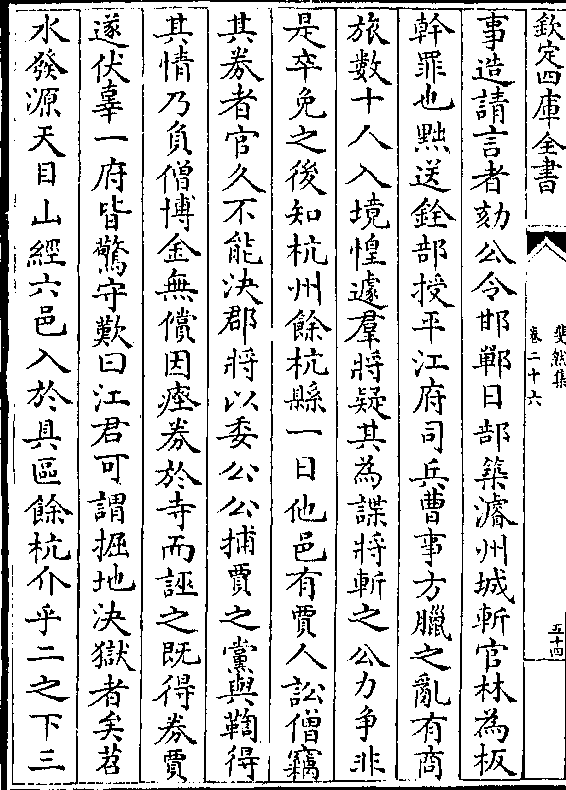 欽定四庫全書
斐然集
卷二十六
五十四
事造請言者劾公令邯鄲日部築濬州城斬官林為板
幹罪也黜送銓部授平江府司兵曹事方臘之亂有商
旅數十人入境惶遽羣將疑其為諜將斬之公力争非
是卒免之後知杭州餘杭縣一日他邑有賈人訟僧竊
其券者官久不能決郡將以委公公捕賈之黨與鞫得
其情乃負僧博金無償因瘞券於寺而誣之既得券賈
遂伏辜一府皆驚守歎曰江君可謂掘地決獄者矣苕
水發源天目山經六邑入於具區餘杭介乎二之下三